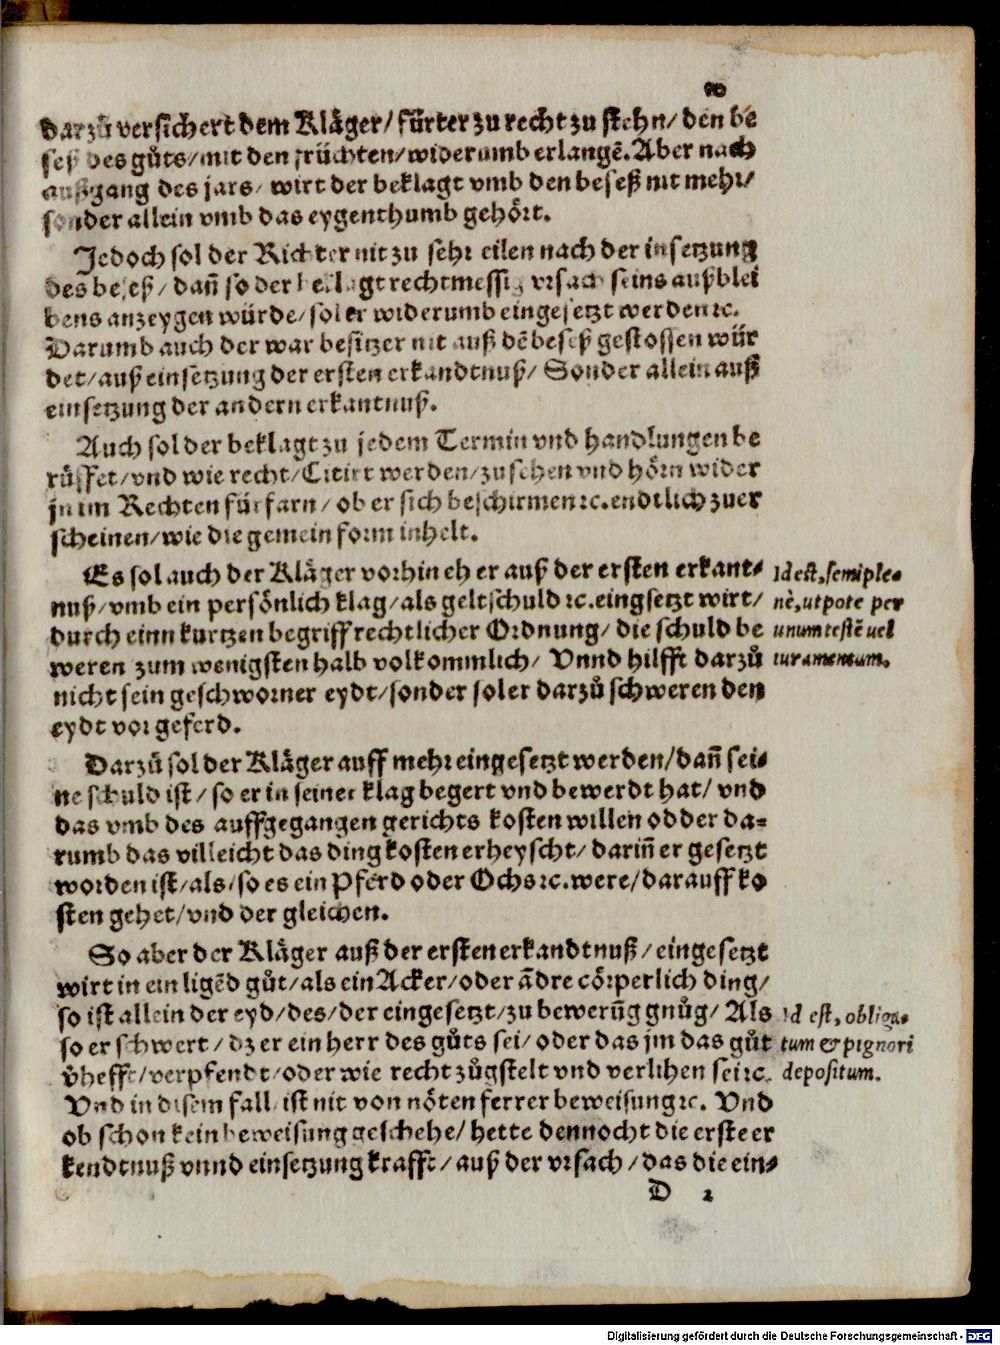 darzů versichert dem Kläger/ fürter zu recht zu stehn/ den be
seß des gůts/ mit den früchten/ widerumb erlangẽ. Aber nach
außgang des jars/ wirt der beklagt vmb den beseß nit mehr/
sonder allein vmb das eygenthumb gehört.
Jedoch sol der Richter nit zu sehr eilen nach der insetzung
des beseß/ dañ so der beklagt rechtmessig vrsach seins außblei
bens anzeygen würde/ sol er widerumb eingesetzt werden ꝛc.
Darumb auch der war besitzer nit auß dẽ beseß gestossen wür
det/ auß einsetzung der ersten erkandtnuß/ Sonder allein auß
einsetzung der andern erkantnuß.
Auch sol der beklagt zu jedem Termin vnd handlungen be
růffet/ vnd wie recht/ Citirt werden/ zu sehen vnd hörn wider
jn im Rechten fürfarn/ ob er sich beschirmen ꝛc. endtlich zu er
scheinen/ wie die gemein form inhelt.
Es sol auch der Kläger vorhin eh er auß der ersten erkant-
nuß/ vmb ein persönlich klag/ als geltschuld ꝛc. eingsetzt wirt/
durch einn kurtzen begriff rechtlicher Ordnung/ die schuld be
weren zum wenigsten halb volkommlich/ Vnnd hilfft darzů
nicht sein geschworner eydt/ sonder sol er darzů schweren den
eydt vor geferd.
Id est, semiple-
nè, utpote per
unum testẽ uel
iuramentum.
Darzů sol der Kläger auff mehr eingesetzt werden/ dañ sei-
ne schuld ist/ so er in seiner klag begert vnd bewerdt hat/ vnd
das vmb des auffgegangen gerichts kosten willen od der da-
rumb das villeicht das ding kosten erheyscht/ dariñ er gesetzt
worden ist/ als/ so es ein Pferd oder Ochs ꝛc. were/ darauff ko
sten gehet/ vnd der gleichen.
So aber der Kläger auß der ersten erkandtnuß/ eingesetzt
wirt in ein ligẽd gůt/ als ein Acker/ oder ãdre cörperlich ding/
so ist allein der eyd/ des/ der eingesetzt/ zu bewerũg gnůg/ Als
so er schwert/ dz er ein herr des gůts sei/ oder das jm das gůt
v̈hefft/ verpfendt/ oder wie recht zůgstelt vnd verlihen sei ꝛc.
Vnd in disem fall ist nit von nöten ferrer beweisung ꝛc. Vnd
ob schon kein beweisung geschehe/ hette dennocht die erste er
kendtnuß vnnd einsetzung krafft/ auß der vrsach/ das die ein-
Id est, obliga-
tum & pignori
depositum.
D 2
Digitalisierung gefördert durch die Deutsche Forschungsgemeinschaft - DFG